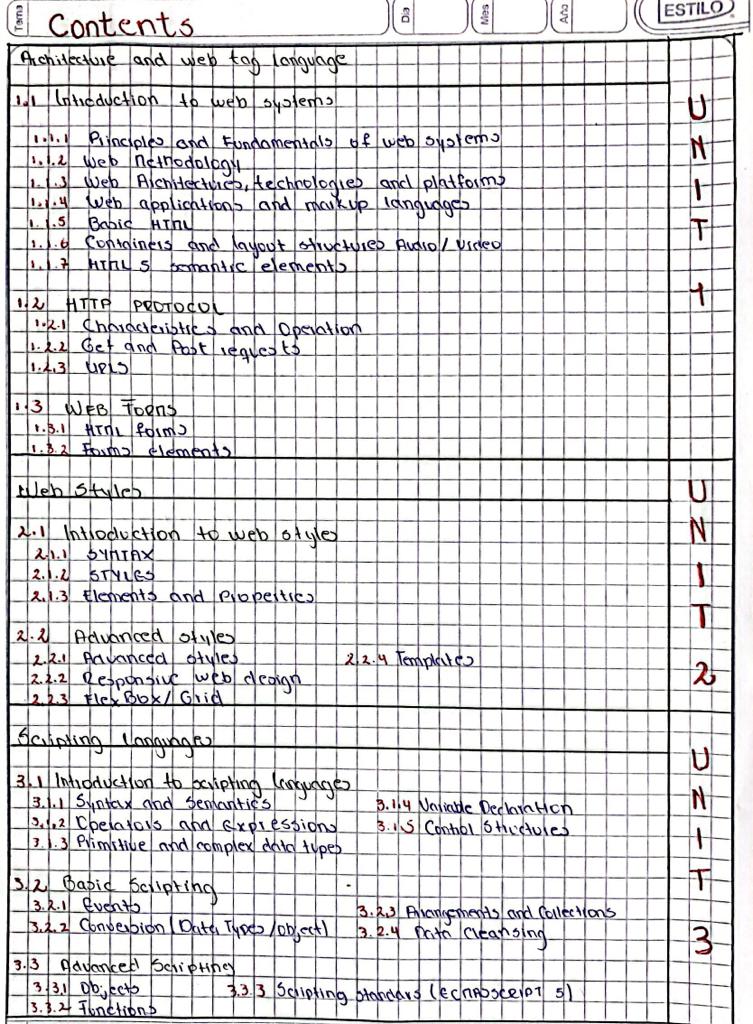 Tema
Contents
Dia
Mes
Año
ESTILO
Architecture and web tag language
1.1 Introduction to web systems
1.1.1 Principles and Fundamentals of web systems
1.1.2 Web Methodology
1.1.3 Web Architectures, technologies and platforms
1.1.4 Web applications and markup languages
1.1.5 Basic HTML
1.1.6 Containers and layout structures Audio/Video
1.1.7 HTML 5 semantic elements
1.2 HTTP PROTOCOL
1.2.1 Characteristics and Operation
1.2.2 Get and Post requests
1.2.3 URLS
1.3 WEB Forms
1.3.1 HTML forms
1.3.2 Forms elements
UNIT 1
Web Styles
2.1 Introduction to web styles
2.1.1 SYNTAX
2.1.2 STYLES
2.1.3 Elements and Properties
2.2 Advanced styles
2.2.1 Advanced styles
2.2.2 Responsive web design
2.2.3 FlexBox/Grid
2.2.4 Templates
UNIT 2
Scripting Languages
3.1 Introduction to scripting languages
3.1.1 Syntax and Semantics
3.1.2 Operators and Expressions
3.1.3 Primitive and complex data types
3.1.4 Variable Declaration
3.1.5 Control Structures
3.2 Basic Scripting
3.2.1 Events
3.2.2 Conversion (Data Types/object)
3.2.3 Arrangements and Collections
3.2.4 Data Cleansing
3.3 Advanced Scripting
3.3.1 Objects
3.3.2 Functions
3.3.3 Scripting standars (ECMASCRIPT 5)
UNIT 3